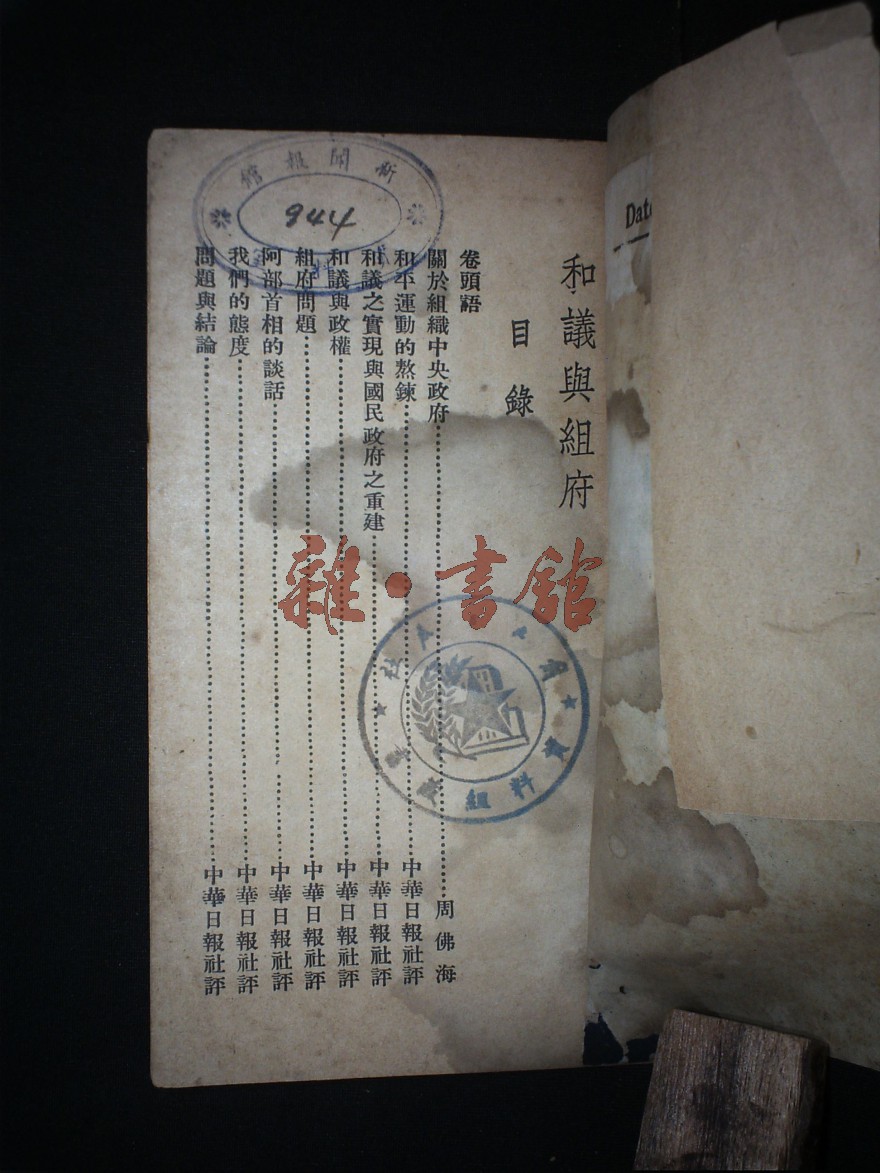 和議與組府
目錄
卷頭語
關於組織中央政府……周佛海
和平運動的熬鍊……中華日報社評
和議之實現與國民政府之重建……中華日報社評
和議與政權……中華日報社評
組府問題……中華日報社評
阿部首相的談話……中華日報社評
我們的態度……中華日報社評
問題與結論……中華日報社評
新聞報館
944
資料組
雜·書館
Date